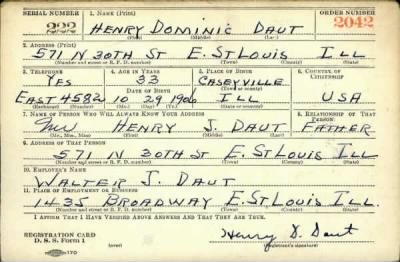 SERIAL NUMBER 1. NAME (Print) ORDER NUMBER
222 HENRY DOMINIC DAUT 2042
(First) (Middle) (Last)
2. ADDRESS (Print)
571 N 30TH ST E. ST LOUIS ILL
(Number and street or R. F. D. number) (Town) (County) (State)
3. TELEPHONE 4. AGE IN YEARS 5. PLACE OF BIRTH 6. COUNTRY OF CITIZENSHIP
YES 33 CASEYVILLE
DATE OF BIRTH (Town or county)
EAST 4582 10 29 1906 ILL USA
(Mo.) (Day) (Yr.) (State or country)
7. NAME OF PERSON WHO WILL ALWAYS KNOW YOUR ADDRESS 8. RELATIONSHIP OF THAT PERSON
Mr HENRY J. DAUT FATHER
(Mr., Mrs., Miss) (First) (Middle) (Last)
9. ADDRESS OF THAT PERSON
571 N 30TH ST E. ST LOUIS ILL
(Number and street or R. F. D. number) (Town) (County) (State)
10. EMPLOYER'S NAME
WALTER J. DAUT
11. PLACE OF EMPLOYMENT OR BUSINESS
1435 BROADWAY E. ST LOUIS ILL.
(Number and street or R. F. D. number) (Town) (County) (State)
I AFFIRM THAT I HAVE VERIFIED ABOVE ANSWERS AND THAT THEY ARE TRUE.
REGISTRATION CARD
D. S. S. Form 1 (over) Henry D. Daut
(Registrant's signature)
170